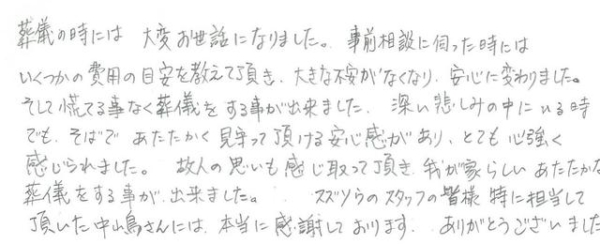 葬儀の時には 大変お世話になりました。 事前相談に伺った時には
いくつかの費用の目安を教えて頂き、大きな不安がなくなり、安心に変わりました。
そして慌てる事なく葬儀をする事が出来ました、 深い悲しみの中にいる時
でも、そばで あたたかく見守って頂ける安心感があり、とても心強く
感じられました。 故人の思いも感じ取って頂き、我が家らしいあたたかな
葬儀をする事が、出来ました。 スズソウのスタッフの皆様 特に担当して
頂いた中山鳥さんには、本当に感謝しております、 ありがとうございました